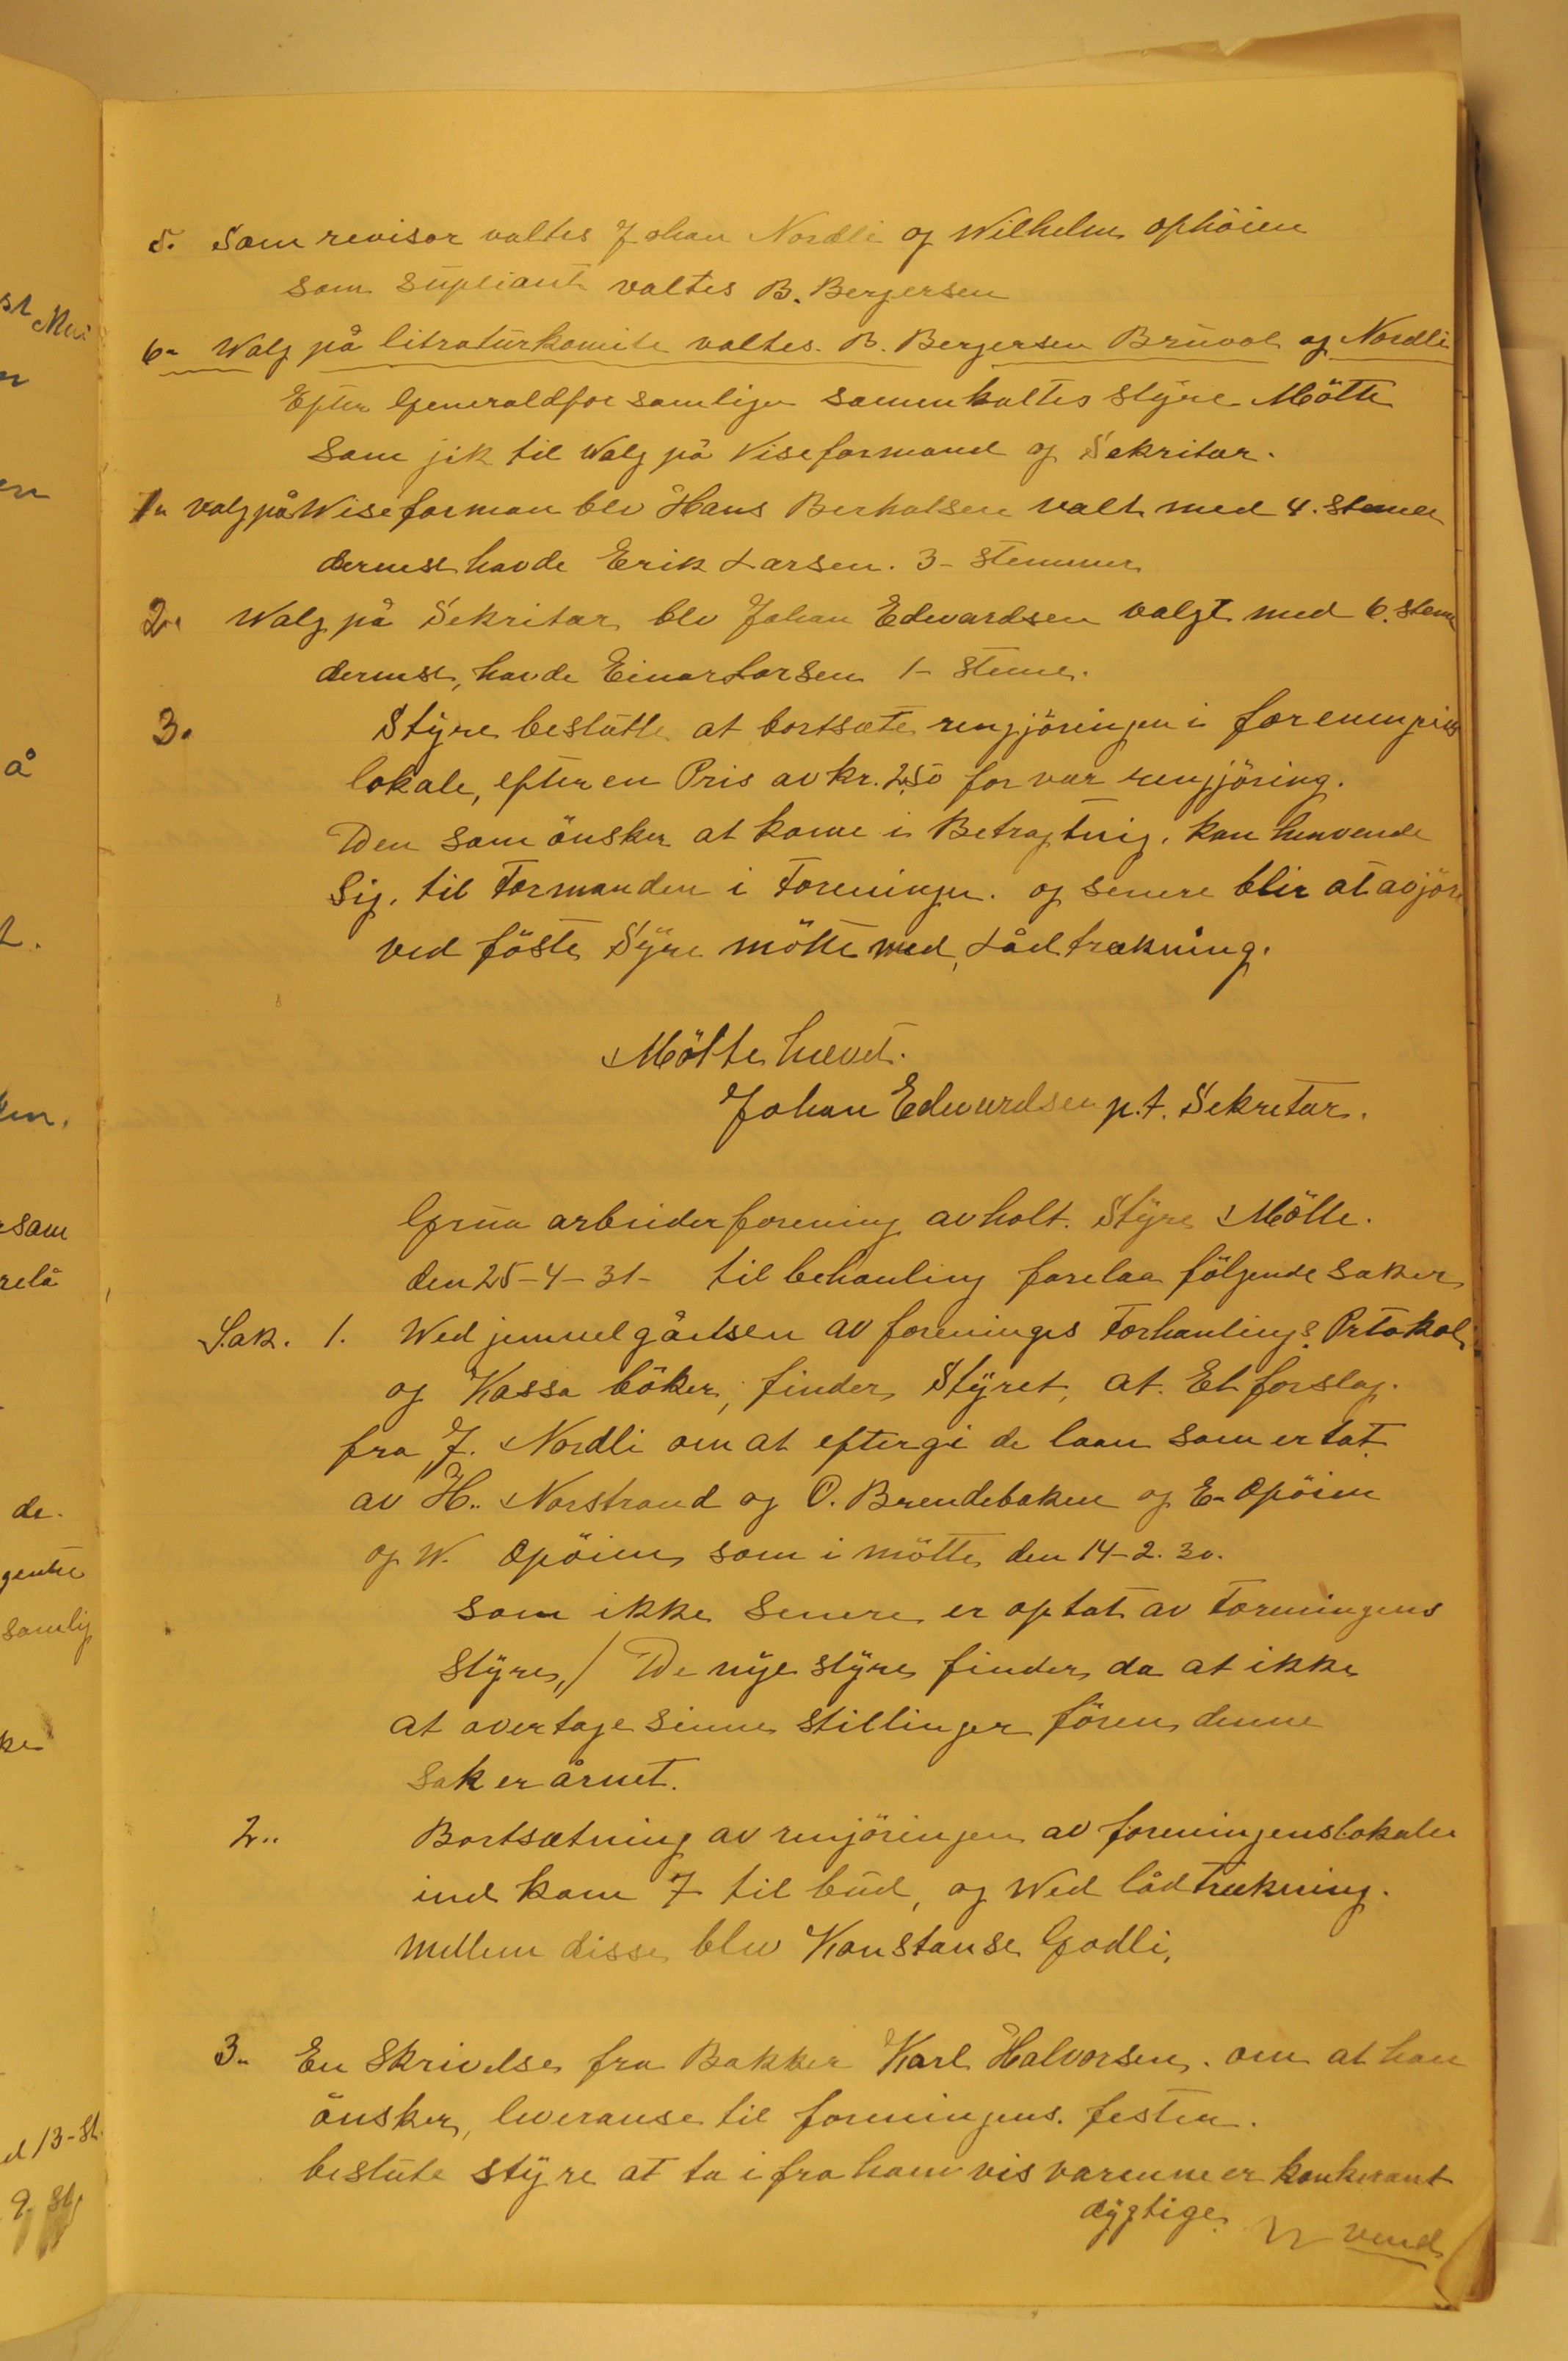 5. Som revisor valtes Johan Nordli og Wilhelm Ophöien
som supliant valtes B. Bergersen
6- Walg på litraturkomite valtes. B. Bergersen Bruvol og Nordli
Efter Generaldforsamligen sammenkaltes styre Mötte
som jik til Walg på Viseformand og Sekritar.
1- valg på Wiseforman blev Hans Berhalsen valt med 4. stemer
dernest havde Erik Larsen. 3- stemmer
2. Walg på Sekritar blv Johan Edwardsen valgt med 6. stem
dernst, havde Einar Larsen 1- steme.
3. Styre beslutte at bortsæte rengjöringen i foreningens
lokale, efter en Pris av kr. 2.50 for var rengjöring.
Den som önsker at kome i Betragtnig. kan henvende
Sig. til Formanden i Foreningen. og senere blir at avjöre
ved föste Syre mötte med, Lådtrækning.
Mötte hævet.
Johan Edwardsen p.t. Sekretar.
Grua arbeiderforening avholt. Styre Mötte.
den 25-4-31- til behanling forelaa fölgende saker
Sak. 1. Wed jennelgåelsen av foreninges Forhanlings Prtokol
og Kassa böker, finder Styret, at. Et forslag.
fra J. Nordli om at eftergi de laan som er tat
av H.. Norstrand og O. Brendebakken og E- Opöien
og W. Opöien som i mötte den 14-2.30.
som ikke senere er optat av Foreningens
styre,/ De nye styre finder da at ikke
at overtage sinne stillinger fören denne
sak er årnet.
2.. Bortsætning av renjöringen av foreningenslokaler
ind kom 7 til bud, og Wed lådtrækning.
mellem disse blev Konstanse Godli,
3.. En Skrivelse fra Bakker Karl Halvorsen. om at han
önsker, leveranse til foreningens. fester.
beslute styre at ta i fra ham vis varenne er konkerant
dygtige.
vend